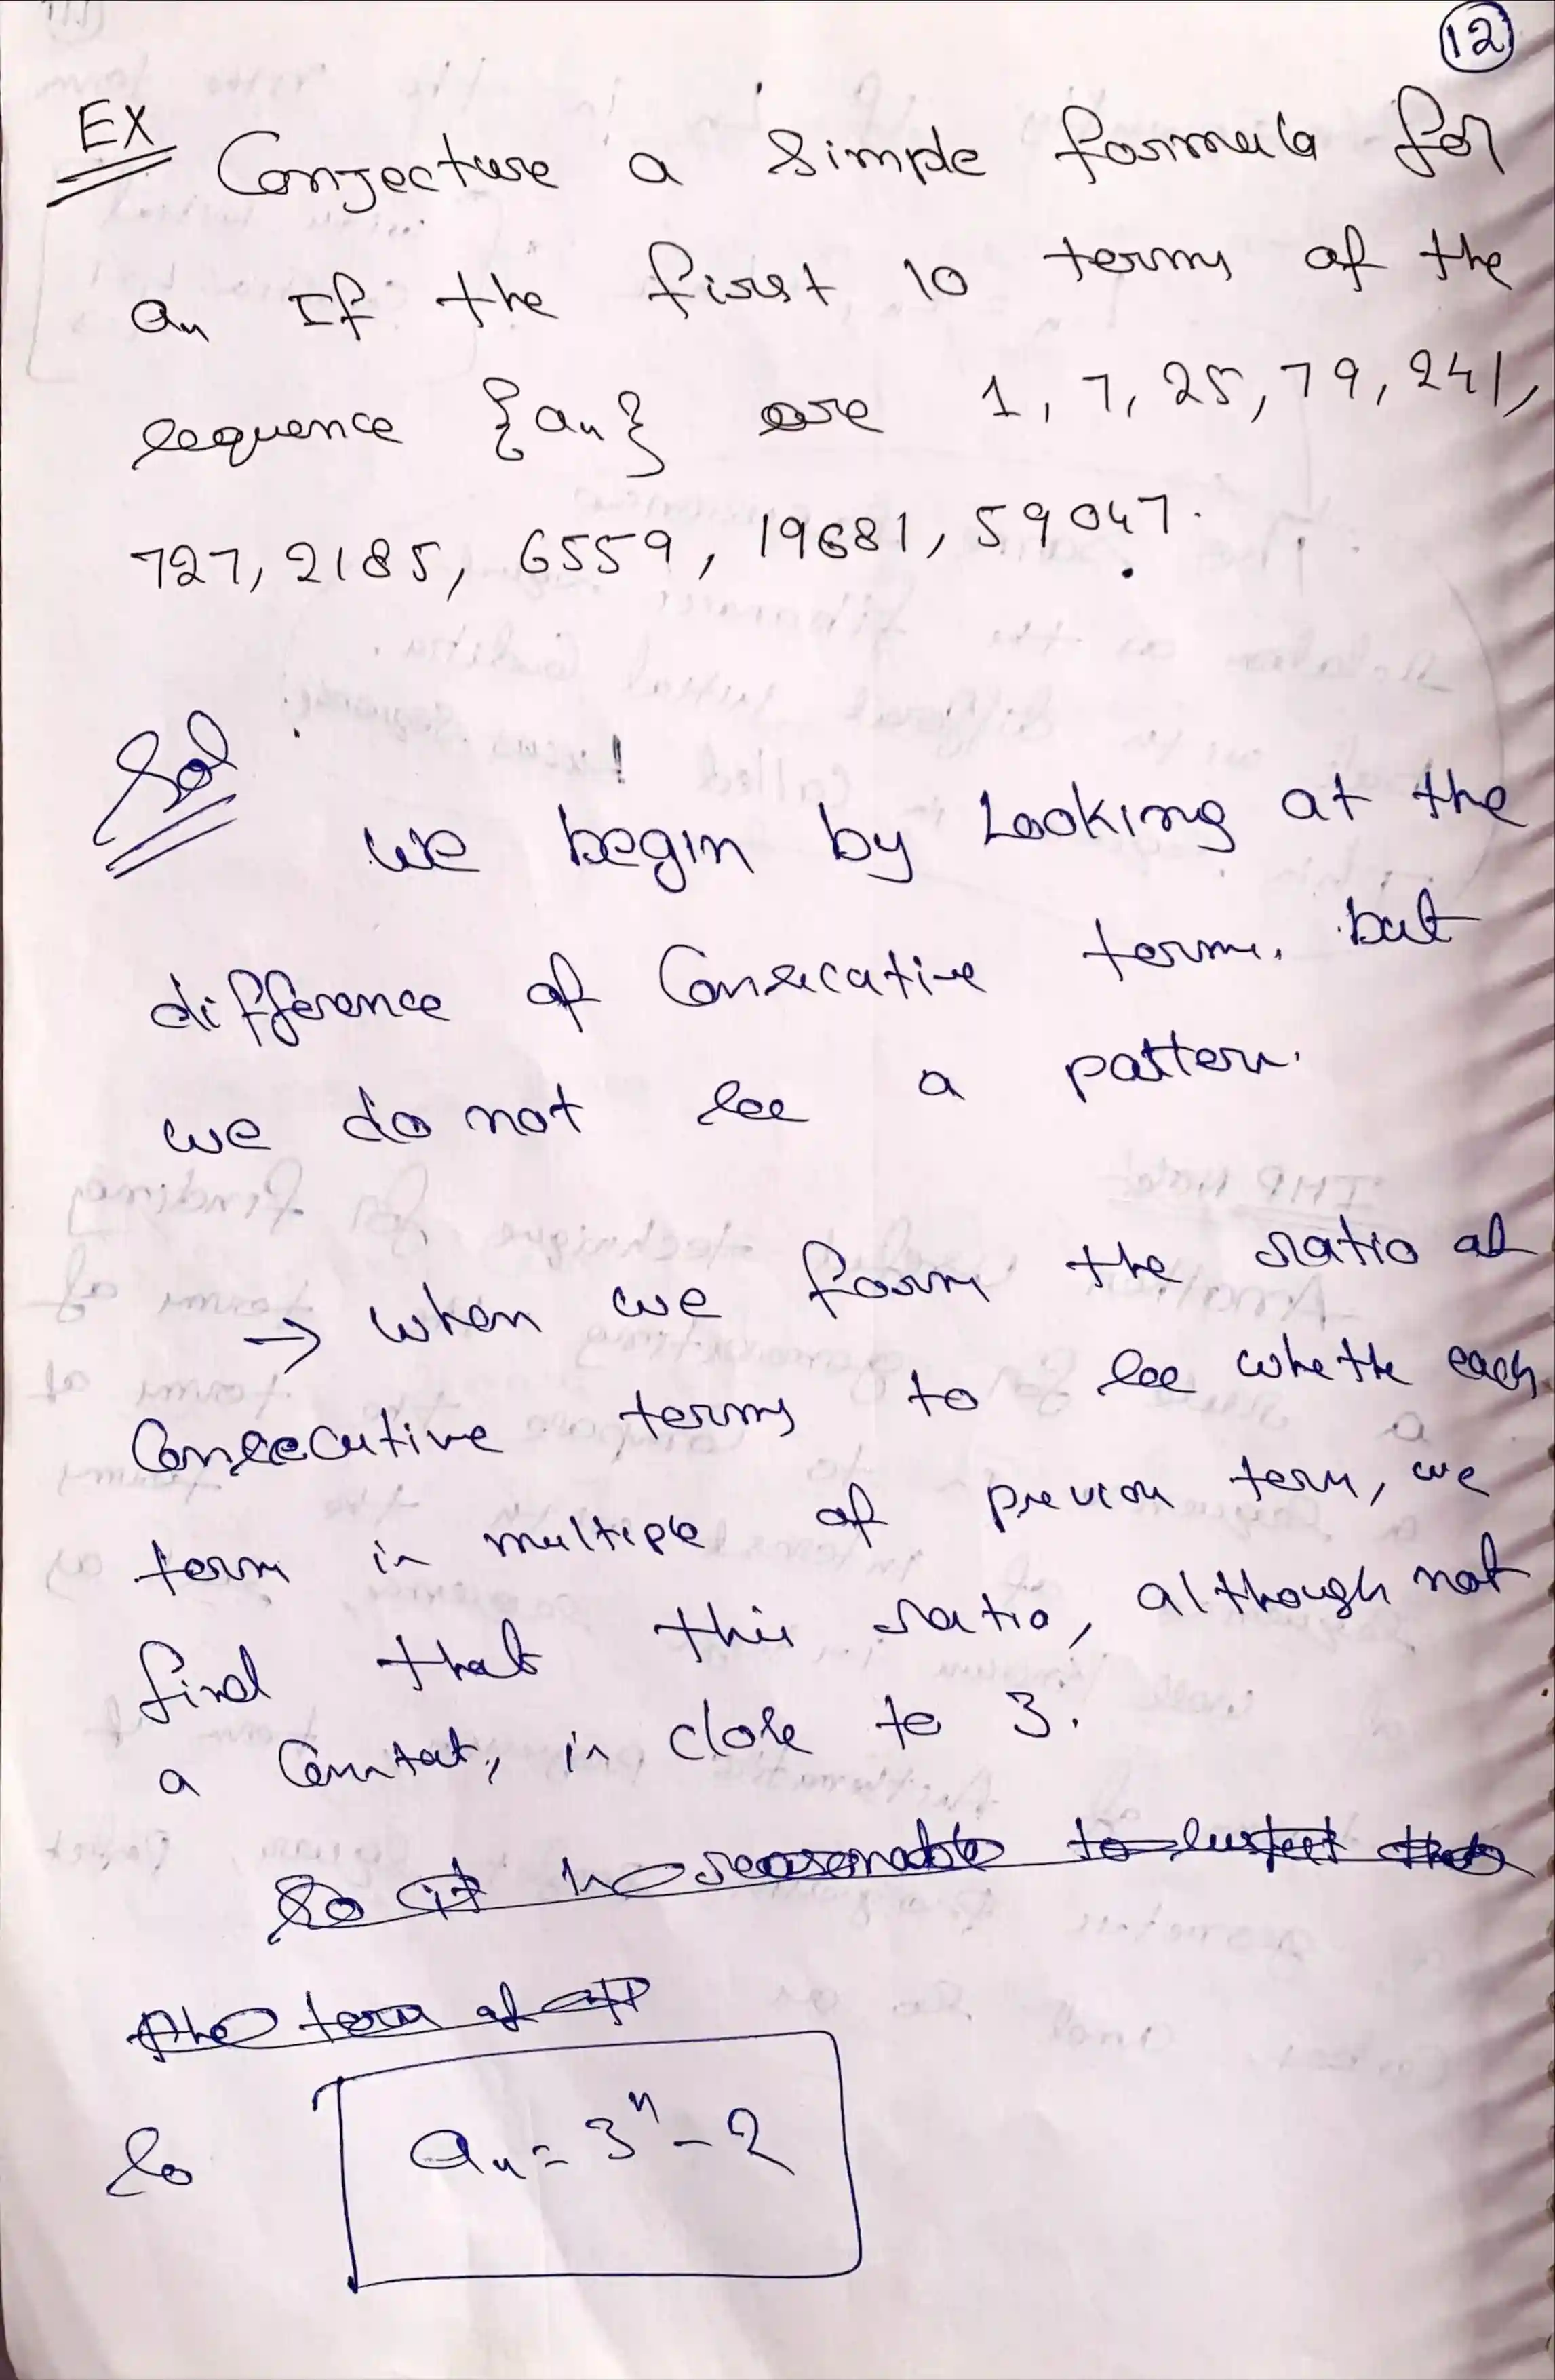 12
EX Conjecture a simple formula for
an If the first 10 terms of the
sequence {an} are 1, 7, 25, 79, 241,
727, 2185, 6559, 19681, 59047.
Sol
we begin by Looking at the
difference of Consecative terms. but
we do not see a pattern.
→ when we form the ratio of
Consecutive terms to see whethe each
term in multiple of previou term, we
find that this ratio, although not
a Constat, is close to 3.
So it is reasonable to suspect that
the term of
So an = 3ⁿ - 2